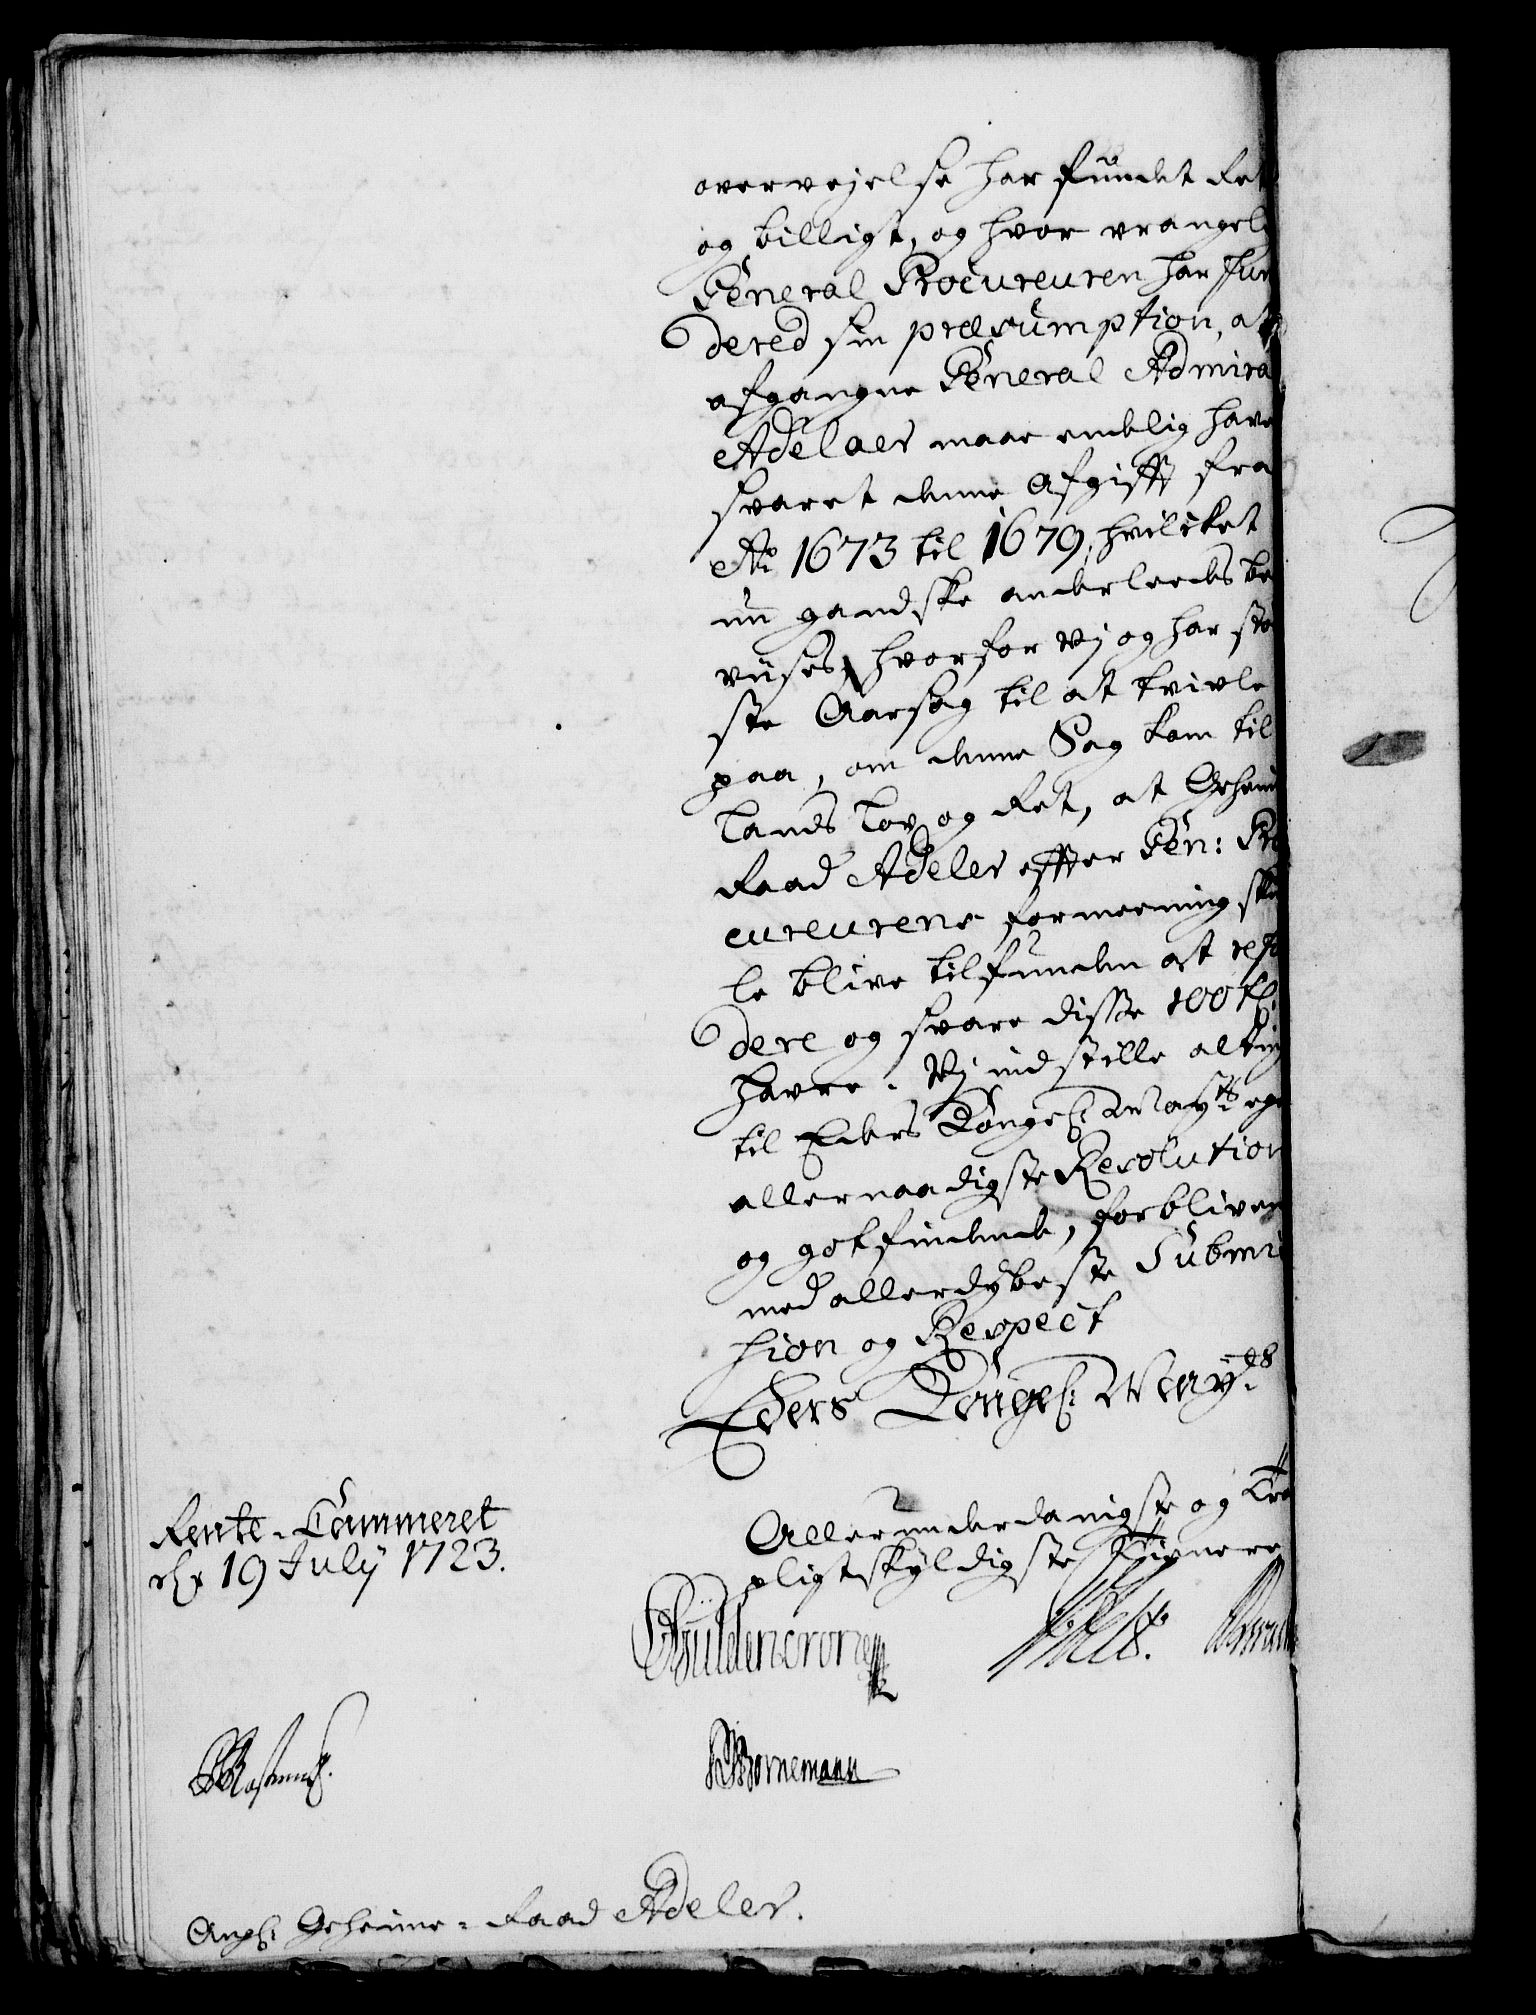 overvejelse har fundet Ret
og billigt, og hvor vrangel
General Procureuren har fun
dered sin præsumption, at
afgangne General Admira
Adelaer maae endelig have
svaret denne Afgifft fra
Ao 1673 til 1679, hvilcket
nu gandske anderleedes be
viises, hvorfor Vj og har stø
ste Aarsag til at tvivle
paa, om denne Sag kom til
Lands Lov og Ret, at Geheime
Raad Adeler effter Gen: Pro
cureurens formeening skul
le blive tilfunden at resti
dere og svare disse 100 Tr:
Havre. Vj indstille alting
til Eders Kongel: Mayts ege
allernaadigste Resolution
og gotfindende, forbliver
med allerdybeste Submi
sion og Respect
Eders Kongel: Mayts
Allerunderdanigste og Tro
pligtskyldigste Tienere
Rente-Cammeret
dr 19 July 1723.
Güldencrone
Bornemann
Angl: Geheime-Raad Adeler.